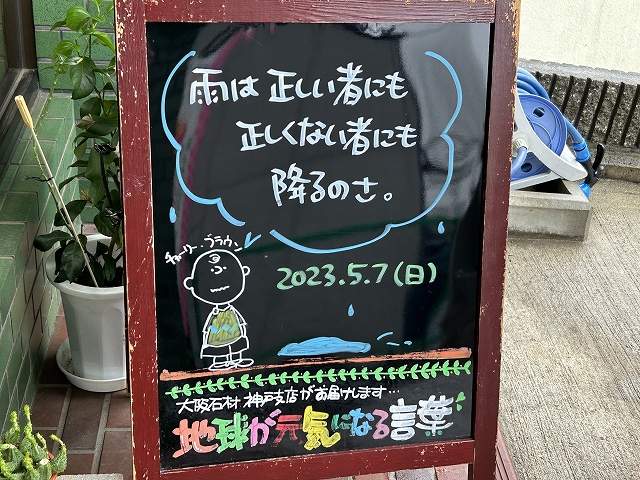 雨は正しい者にも
正しくない者にも
降るのさ。
チャーリー・ブラウン
2023.5.7(日)
大阪石材 神戸支店がお届けします…
地球が元気になる言葉